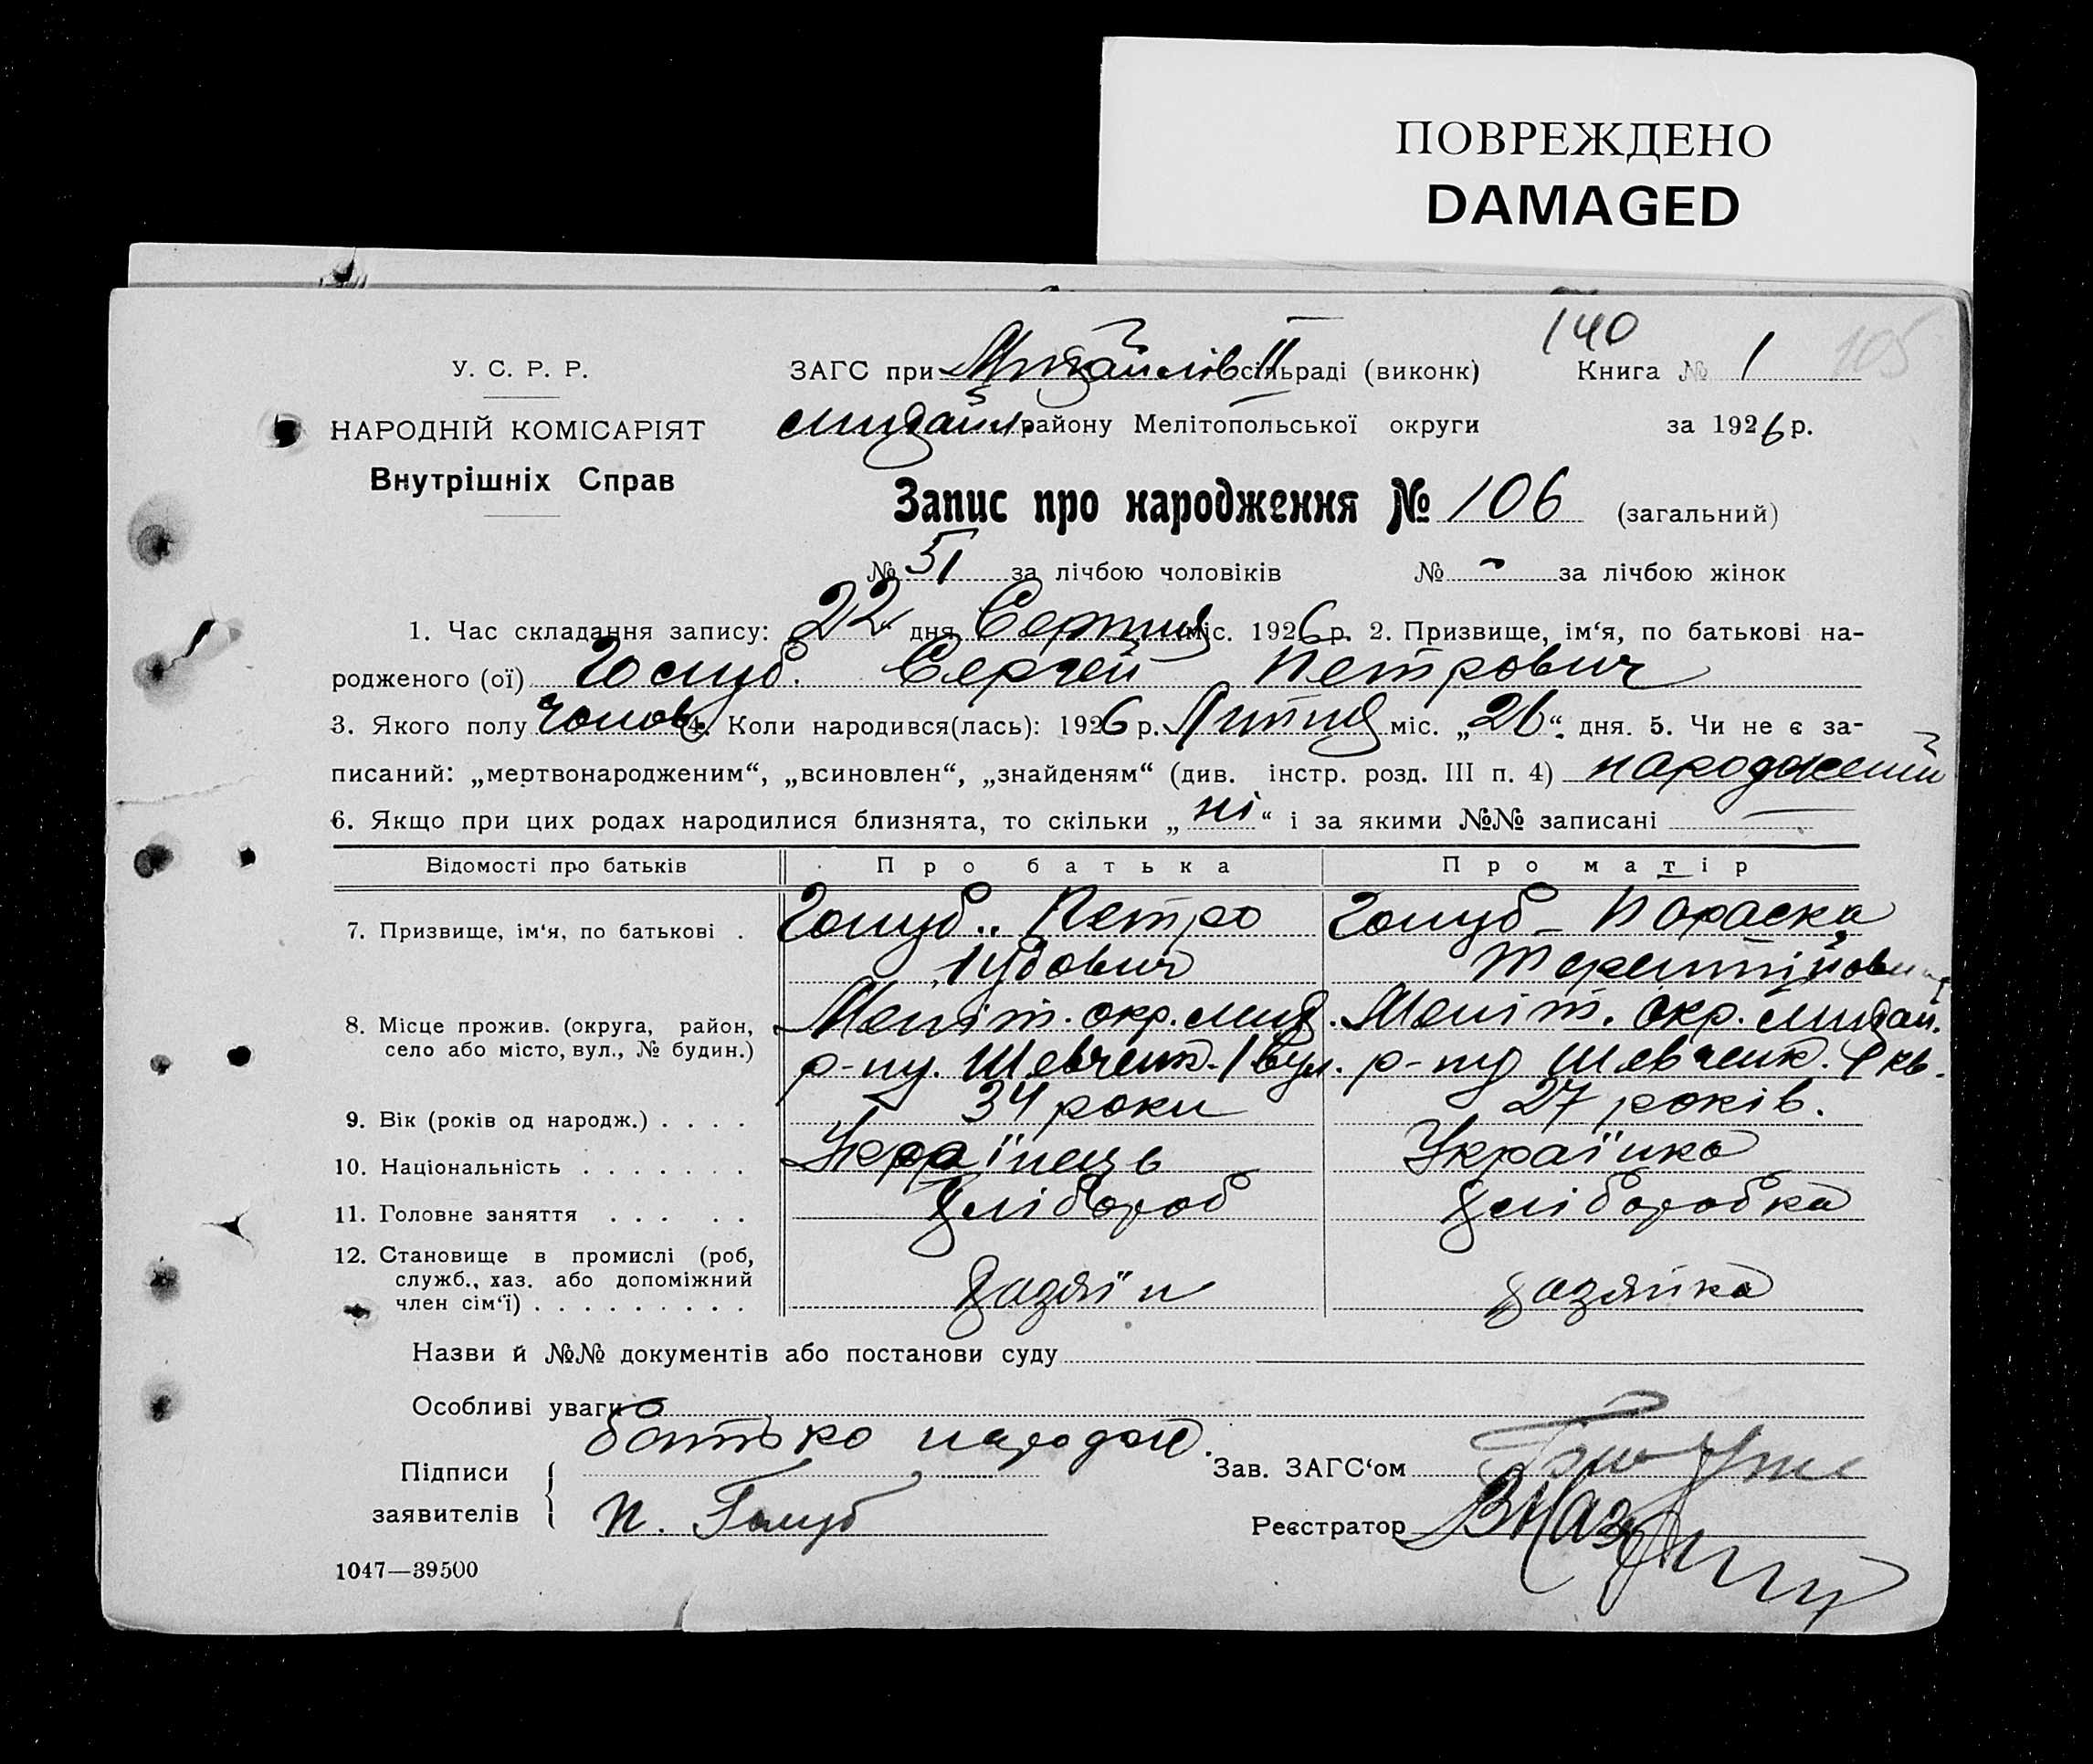 ПОВРЕЖДЕНО
DAMAGED
140
105
У. С. Р. Р.
ЗАГС при Михайлів II сільраді (виконк)
Книга № 1
НАРОДНІЙ КОМІСАРІЯТ
михайл. району Мелітопольської округи
за 1926 р.
Внутрішніх Справ
Запис про народження № 106 (загальний)
№ 51 за лічбою чоловіків № - за лічбою жінок
1. Час складання запису: 22 дня Серпня міс. 1926 р. 2. Призвище, ім‘я, по батькові на-
родженого (ої) Голуб. Сергей Петрович
3. Якого полу чолов. 4. Коли народився(лась): 1926 р. Липня міс. „26“ дня. 5. Чи не є за-
писаний: „мертвонародженим“, „всиновлен“, „знайденям“ (див. інстр. розд. III п. 4) народжений
6. Якщо при цих родах народилися близнята, то скільки „ні“ і за якими №№ записані —
Відомості про батьків Про батька Про матір
7. Призвище, ім‘я, по батькові . Голуб Петро Голуб - Параска
8. Місце прожив. (округа, район, Меліт. окр. мих. Меліт. окр. михай.
село або місто, вул., № будин.) р-ну. Шевченк. 1 вул. р-ну Шевченк. 1 кв.
9. Вік (років од народж.) . . . . 34 роки 27 років.
10. Національність . . . . . . . Українець Українка
11. Головне заняття . . . . . Хлібороб Хліборобка
12. Становище в промислі (роб,
служб., хаз. або допоміжний хазяїн хазяйка
член сім‘ї) . . . . . . . . .
Назви й №№ документів або постанови суду
Особливі уваги
батько народж.
Підписи
Зав. ЗАГС‘ом
заявителів П. Голуб
Реєстратор
1047—39500